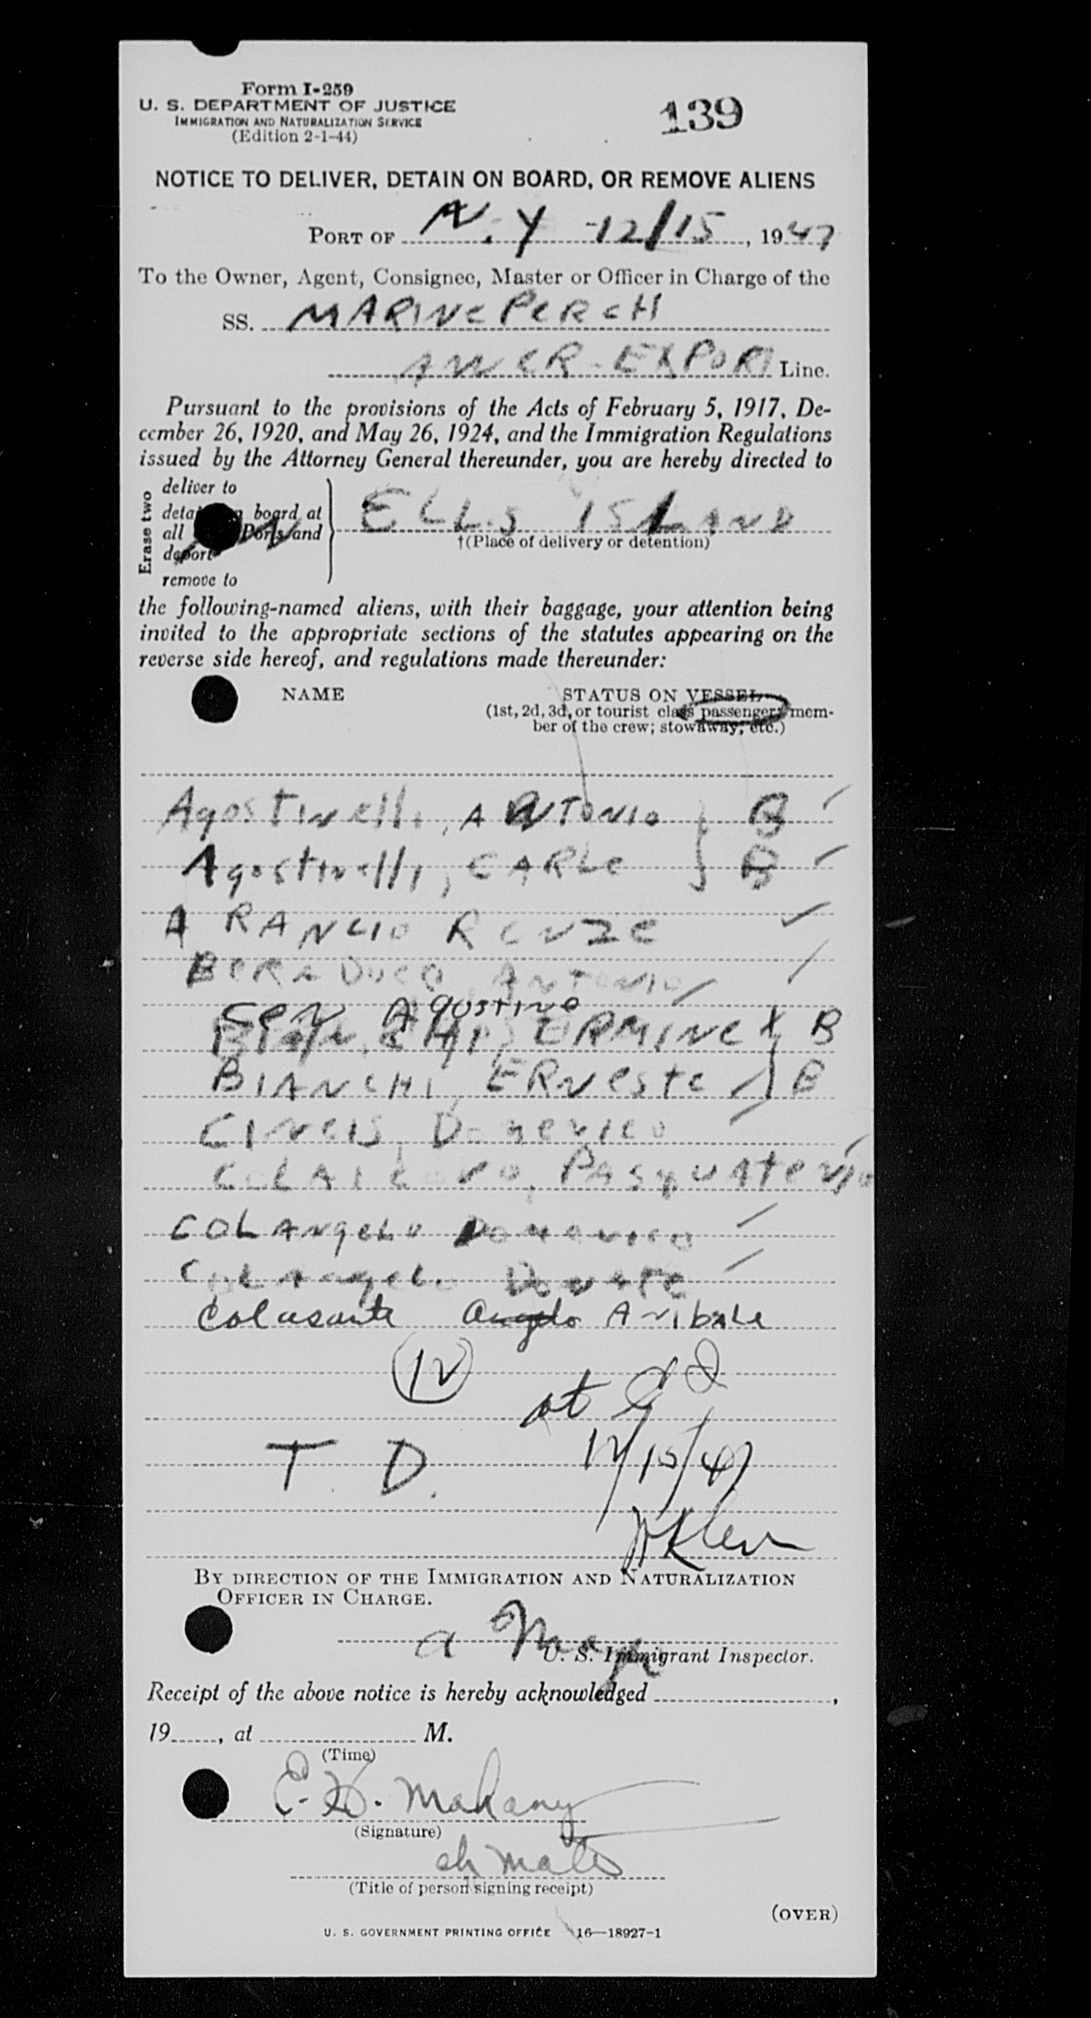 Form I-259
U. S. DEPARTMENT OF JUSTICE
IMMIGRATION AND NATURALIZATION SERVICE
(Edition 2-1-44)
139
NOTICE TO DELIVER, DETAIN ON BOARD, OR REMOVE ALIENS
PORT OF N.Y -12/15, 1947
To the Owner, Agent, Consignee, Master or Officer in Charge of the
SS. MARINE PERCH
AMER-EXPORT Line.
Pursuant to the provisions of the Acts of February 5, 1917, De-
cember 26, 1920, and May 26, 1924, and the Immigration Regulations
issued by the Attorney General thereunder, you are hereby directed to
Erase two
deliver to
board at
all Ports and
deport
remove to
ELLS ISLAND
†(Place of delivery or detention)
the following-named aliens, with their baggage, your attention being
invited to the appropriate sections of the statutes appearing on the
reverse side hereof, and regulations made thereunder:
NAME
STATUS ON VESSEL
(1st, 2d, 3d, or tourist class passenger; mem-
ber of the crew; stowaway, etc.)
Agostinelli, ANTONIO } B
Agostinelli, CARLE } B
ARANCIO RENZE
ANTONIO
Agostino
BIANCHI, ERMINE B
BIANCHI, ERNESTE B
Domenico
COLANGELO Domenico
COLANGELO Donate
Colasante Angelo Anibale
12
at
T D.
12/15/47
BY DIRECTION OF THE IMMIGRATION AND NATURALIZATION
OFFICER IN CHARGE.
U. S. Immigrant Inspector.
Receipt of the above notice is hereby acknowledged ,
19 , at M.
(Time)
E. H. Mahany
(Signature)
ch mate
(Title of person signing receipt)
(OVER)
U. S. GOVERNMENT PRINTING OFFICE 16—18927-1